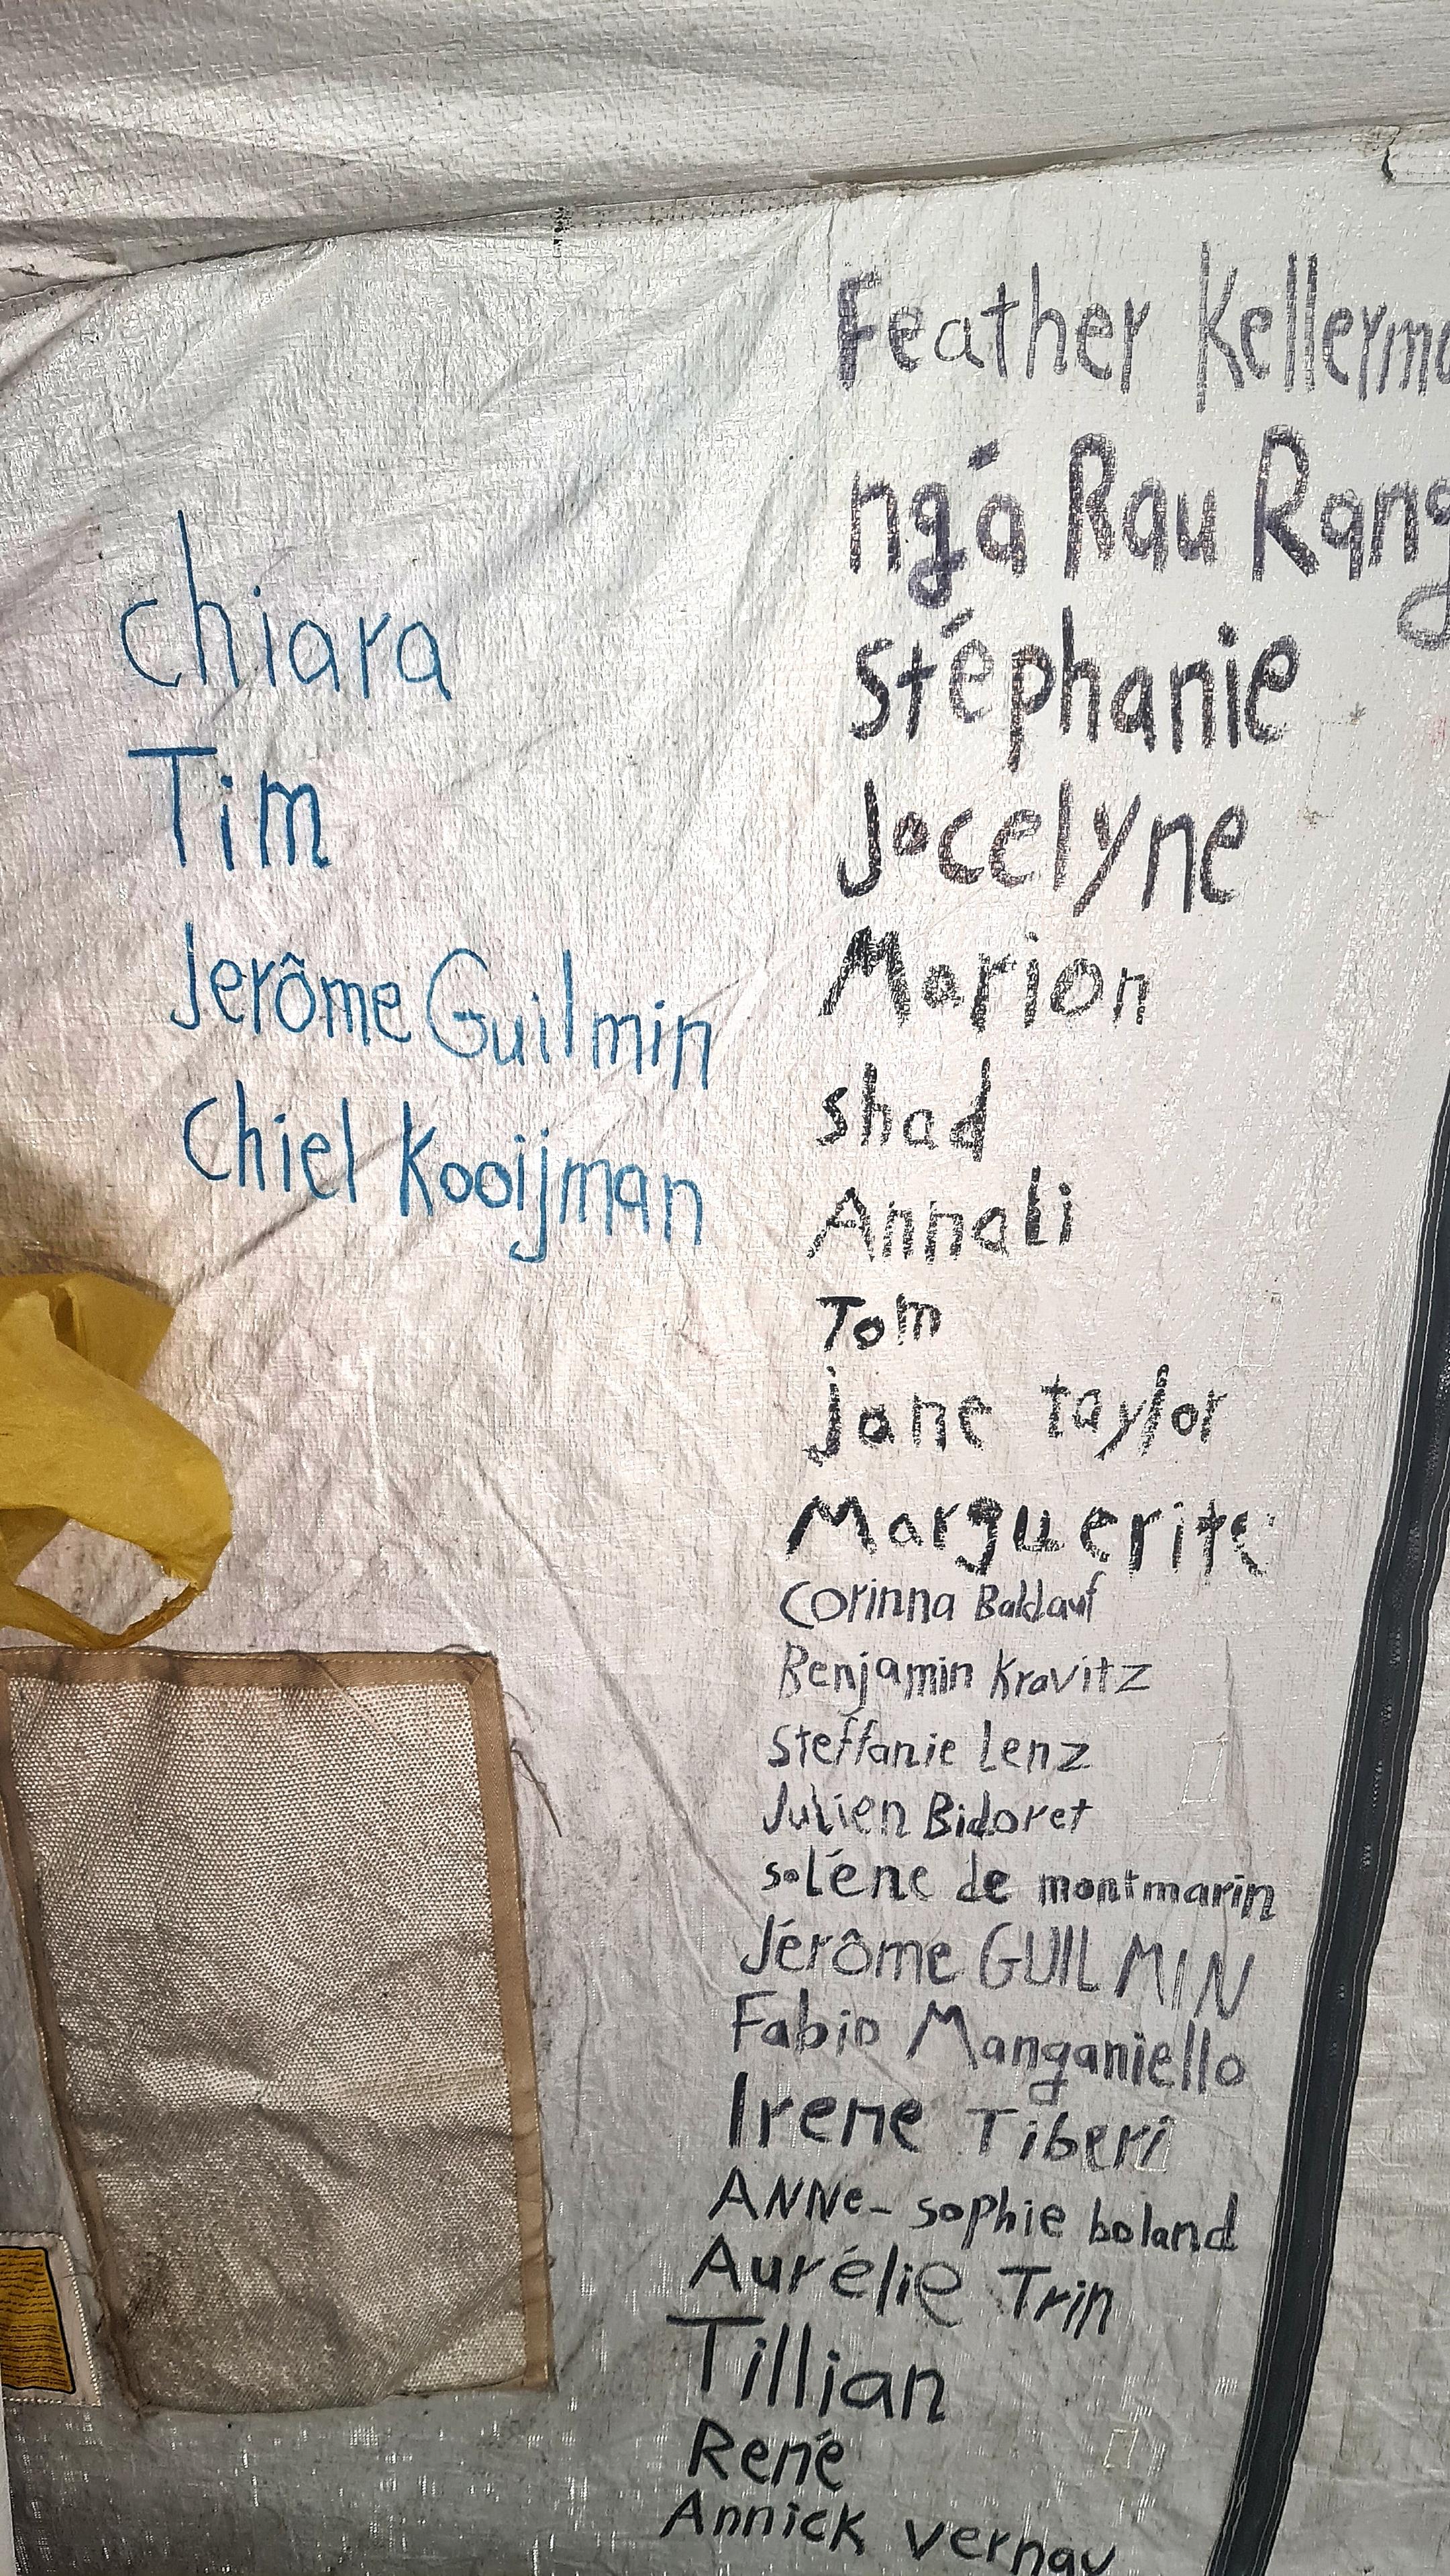 chiara
Tim
Jerôme Guilmin
Chiel Kooijman
Feather Kellerma
ngá Rau Rang
Stéphanie
Jocelyne
Marion
shad
Annali
Tom
jane taylor
Marguerite
Corinna Baldauf
Benjamin Kravitz
Steffanie Lenz
Julien Bidoret
solène de montmarin
Jérôme GUILMIN
Fabio Manganiello
Irene Tiberi
ANNe-sophie boland
Aurélie Trin
Tillian
René
Annick vernay